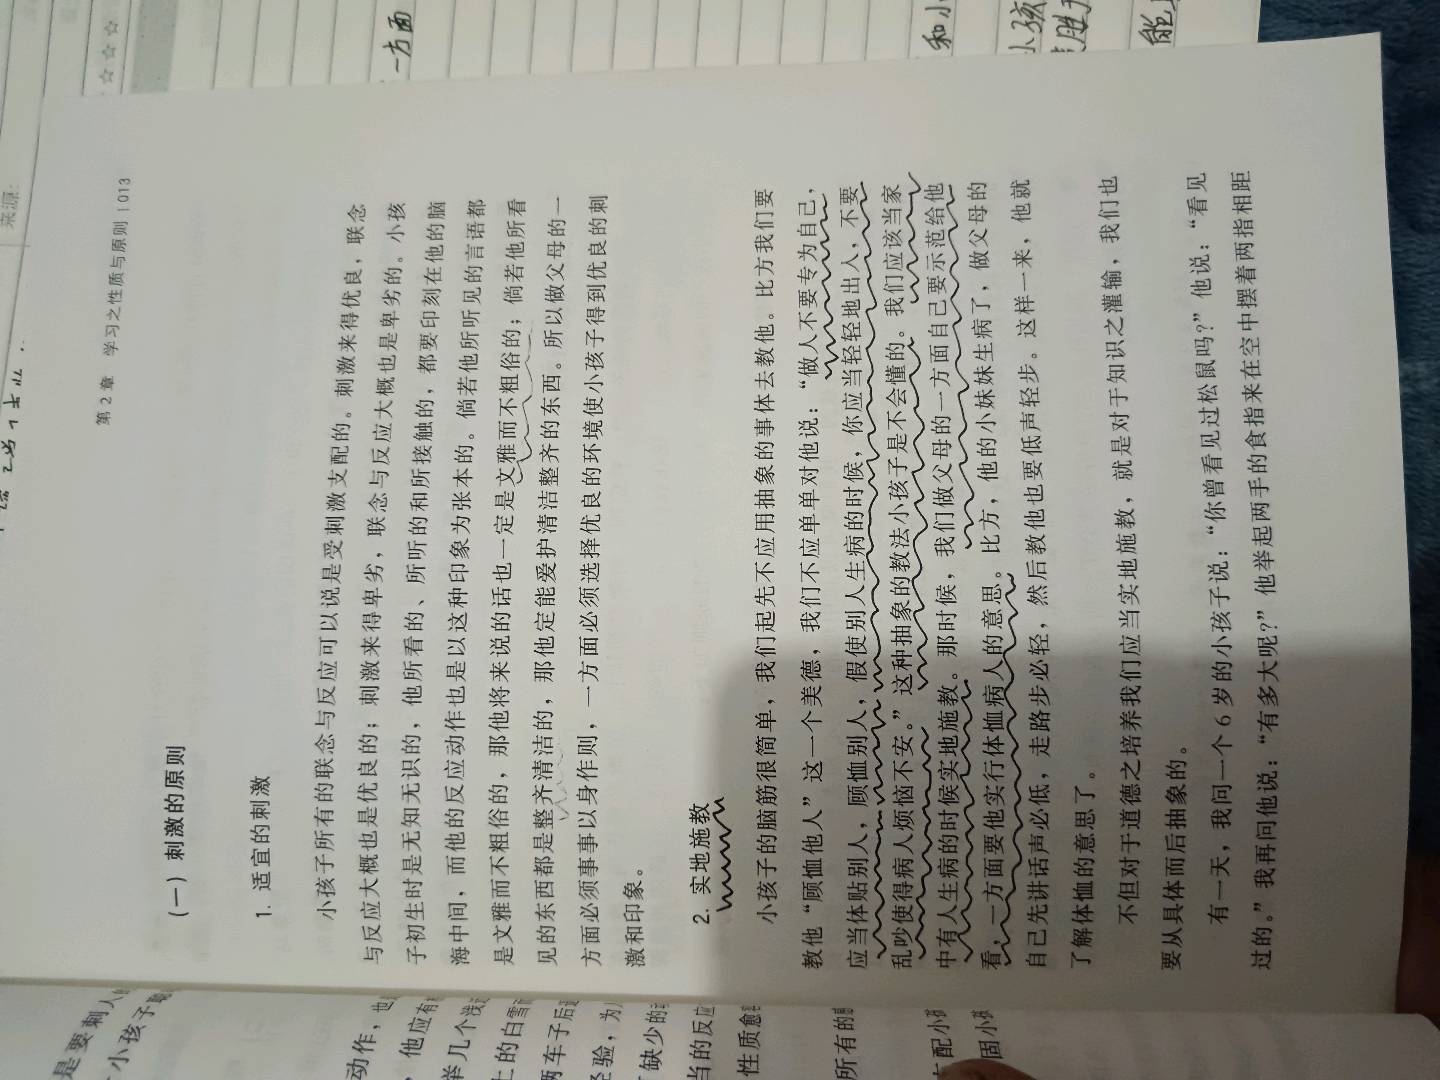 第 2 章 学习之性质与原则 | 013
(一) 刺激的原则
1. 适宜的刺激
小孩子所有的联念与反应可以说是受刺激支配的。刺激来得优良，联念
与反应大概也是优良的；刺激来得卑劣，联念与反应大概也是卑劣的。小孩
子初生时是无知无识的，他所看的、所听的和所接触的，都要印刻在他的脑
海中间，而他的反应动作也是以这种印象为张本的。倘若他所听见的言语都
是文雅而不粗俗的，那他将来说的话也一定是文雅而不粗俗的；倘若他所看
见的东西都是整齐清洁的，那他定能爱护清洁整齐的东西。所以做父母的一
方面必须事事以身作则，一方面必须选择优良的环境使小孩子得到优良的刺
激和印象。
2. 实地施教
小孩子的脑筋很简单，我们起先不应用抽象的事体去教他。比方我们要
教他“顾恤他人”这一个美德，我们不应单单对他说：“做人不要专为自己，
应当体贴别人，顾恤别人，假使别人生病的时候，你应当轻轻地出人，不要
乱吵使得病人烦恼不安。”这种抽象的教法小孩子是不会懂的。我们应该当家
中有人生病的时候实地施教。那时候，我们做父母的一方面自己要示范给他
看，一方面要他实行体恤病人的意思。比方，他的小妹妹生病了，做父母的
自己先讲话声必低，走路步必轻，然后教他也要低声轻步。这样一来，他就
了解体恤的意思了。
不但对于道德之培养我们应当实地施教，就是对于知识之灌输，我们也
要从具体而后抽象的。
有一天，我问一个 6 岁的小孩子说：“你曾看见过松鼠吗？”他说：“看见
过的。”我再问他说：“有多大呢？”他举起两手的食指来在空中摆着两指相距
是要刺人
小孩子
动作，
，他应有
举几个浅
上的白雪
两车子后
经验，为
缺少的
当的反应
性质愈
所有的
配小孩
固小孩
来源:
一方面
和小
小孩
能